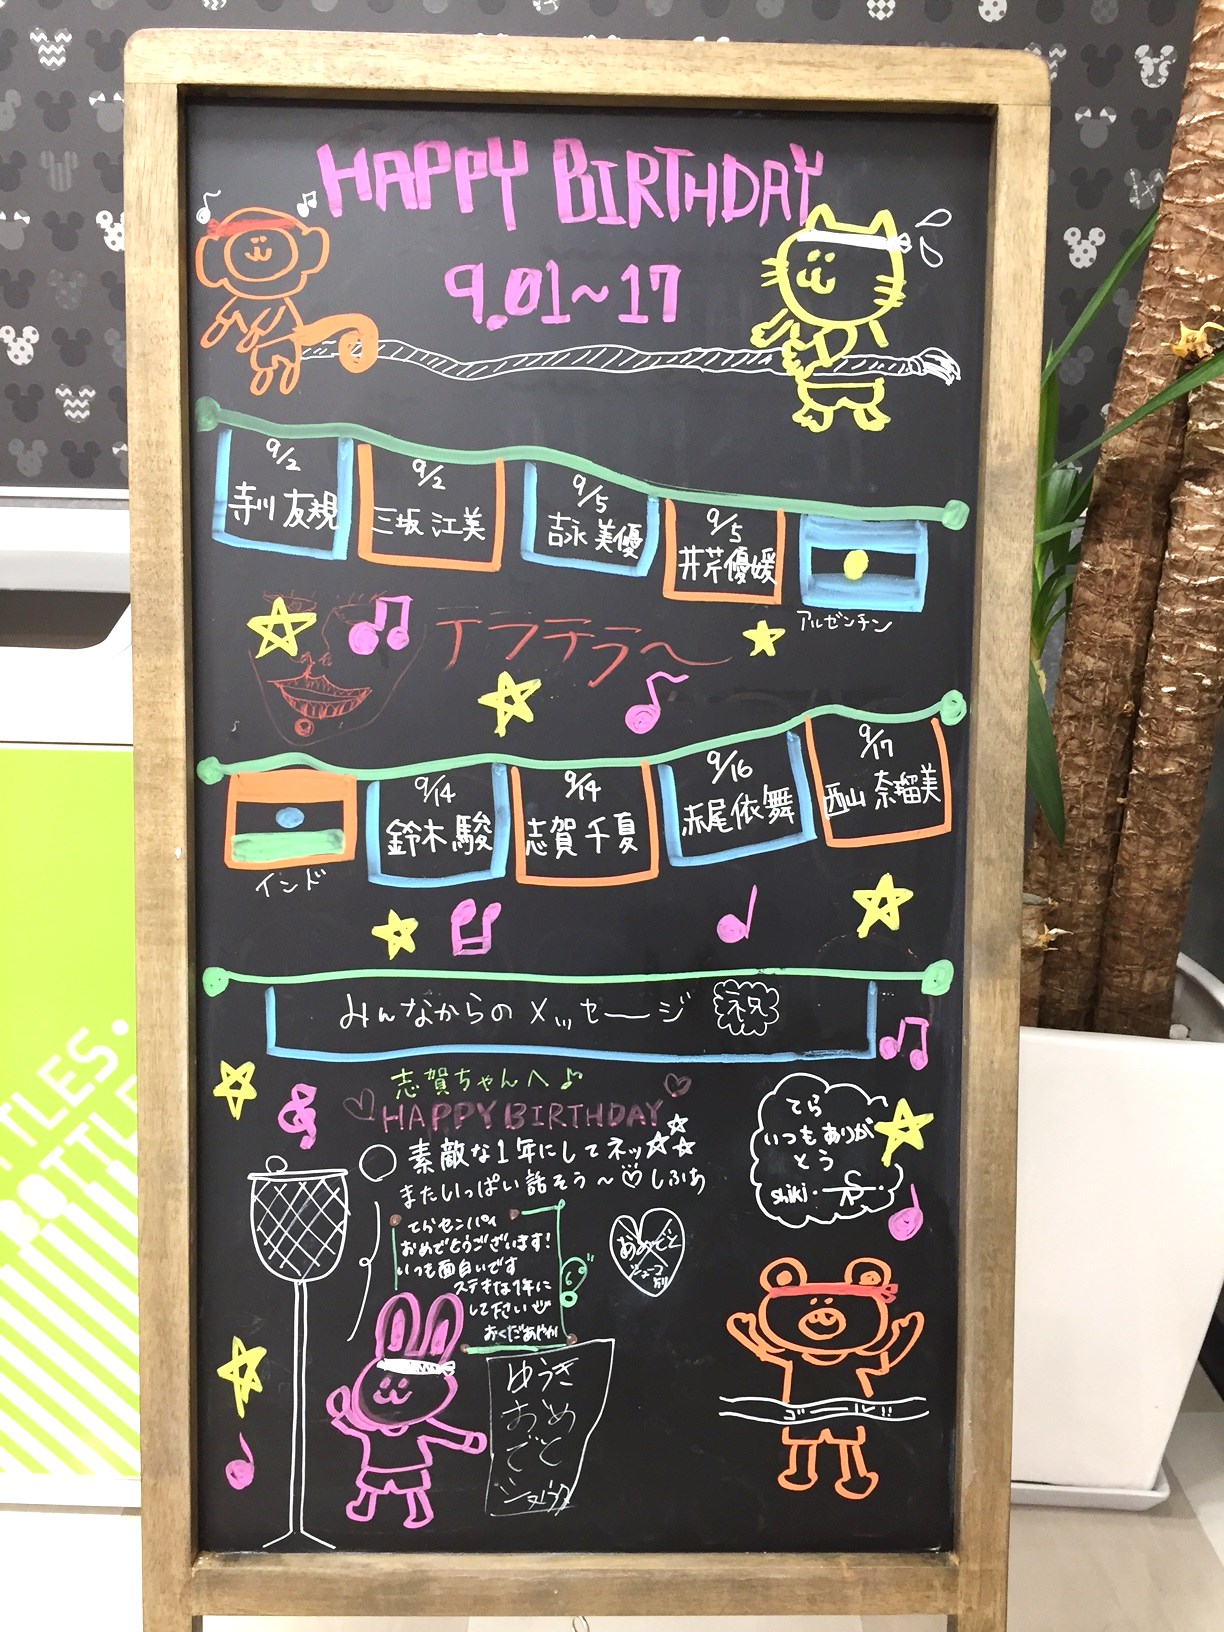 HAPPY BIRTHDAY
9.01~17
9/2
寺川 友規
9/2
三坂 江美
9/5
吉永 美優
9/5
井芹優媛
アルゼンチン
テラテラ〜
インド
9/14
鈴木 駿
9/14
志賀 千夏
9/16
赤尾依舞
9/17
西山 奈瑠美
みんなからのメッセージ 祝
志賀ちゃんへ♪
HAPPY BIRTHDAY
素敵な1年にしてネッ☆☆☆
またいっぱい話そう〜♡しふぁ
てら
いつもありが
とう
shiki.
てらセンパイ
おめでとうございます!
いつも面白いです
ステキな1年に
して下さい
おくだあやか
おめでと
ゆうき
おめ
でと
ゴール!!
TLES.
BOTTLE